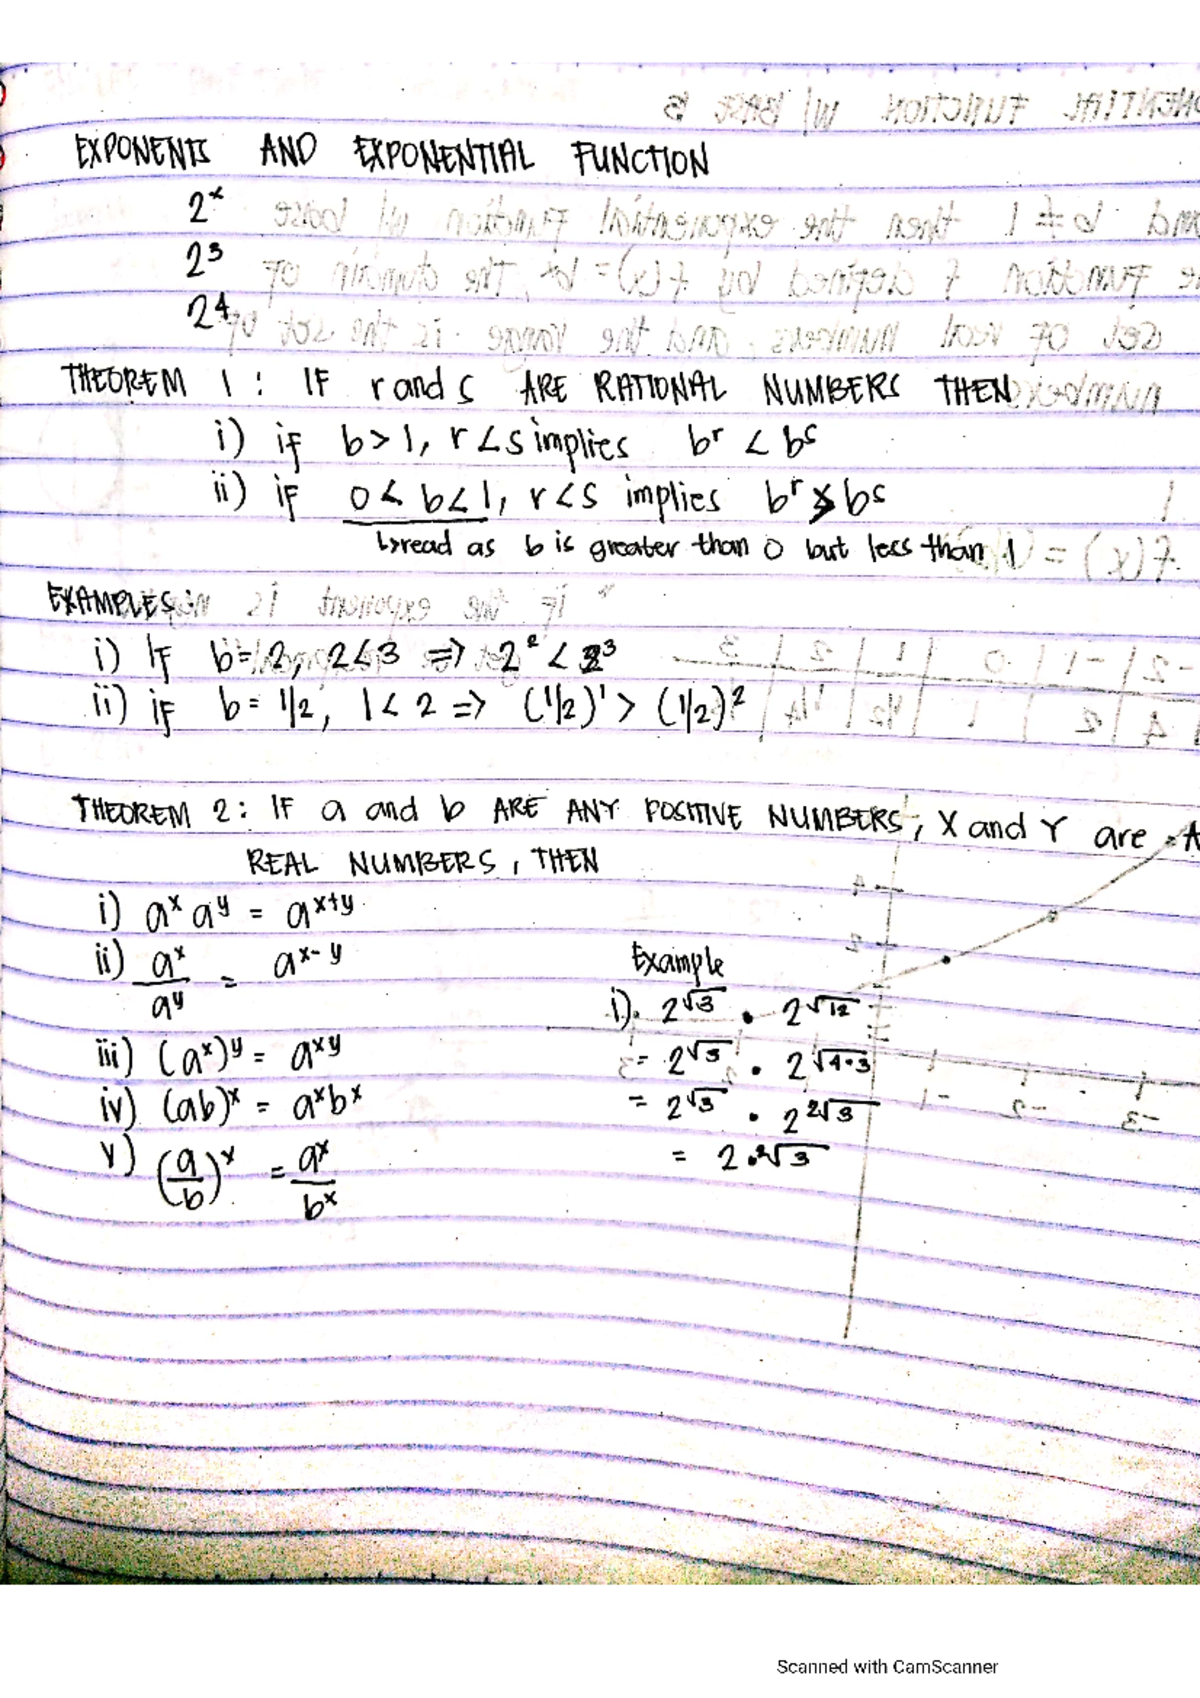 EXPONENTS AND EXPONENTIAL FUNCTION
2ˣ
2³
2⁴
THEOREM 1 : IF r and s ARE RATIONAL NUMBERS THEN
i) if b > 1, r < s implies bʳ < bˢ
ii) if 0 < b < 1, r < s implies bʳ > bˢ
↳ read as b is greater than 0 but less than 1
EXAMPLES :
i) If b = 2, 2 < 3 => 2² < 2³
ii) if b = 1/2, 1 < 2 => (1/2)¹ > (1/2)²
THEOREM 2 : IF a and b ARE ANY POSITIVE NUMBERS, X and Y are
REAL NUMBERS, THEN
i) aˣ aʸ = aˣ⁺ʸ
ii) aˣ/aʸ = aˣ⁻ʸ
iii) (aˣ)ʸ = aˣʸ
iv) (ab)ˣ = aˣbˣ
v) (a/b)ˣ = aˣ/bˣ
Example
i). 2^√3 • 2^√12
= 2^√3 • 2^√4•3
= 2^√3 • 2^2√3
= 2•³√3
Scanned with CamScanner